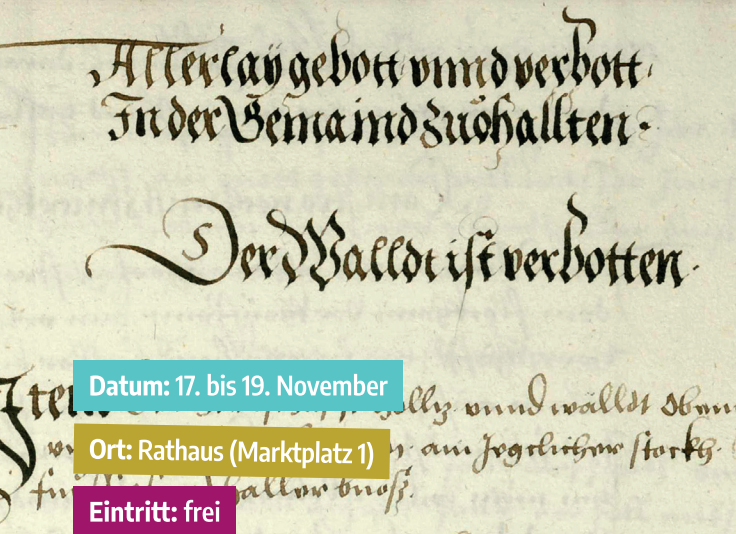 Allerlay gebott vnnd verbott
In der Gemaind zuo hallten.
Der Walldt ist verbotten.
Item vnnd wälldt Oben
am Jegclicher stockh
haller buosz.
Datum: 17. bis 19. November
Ort: Rathaus (Marktplatz 1)
Eintritt: frei